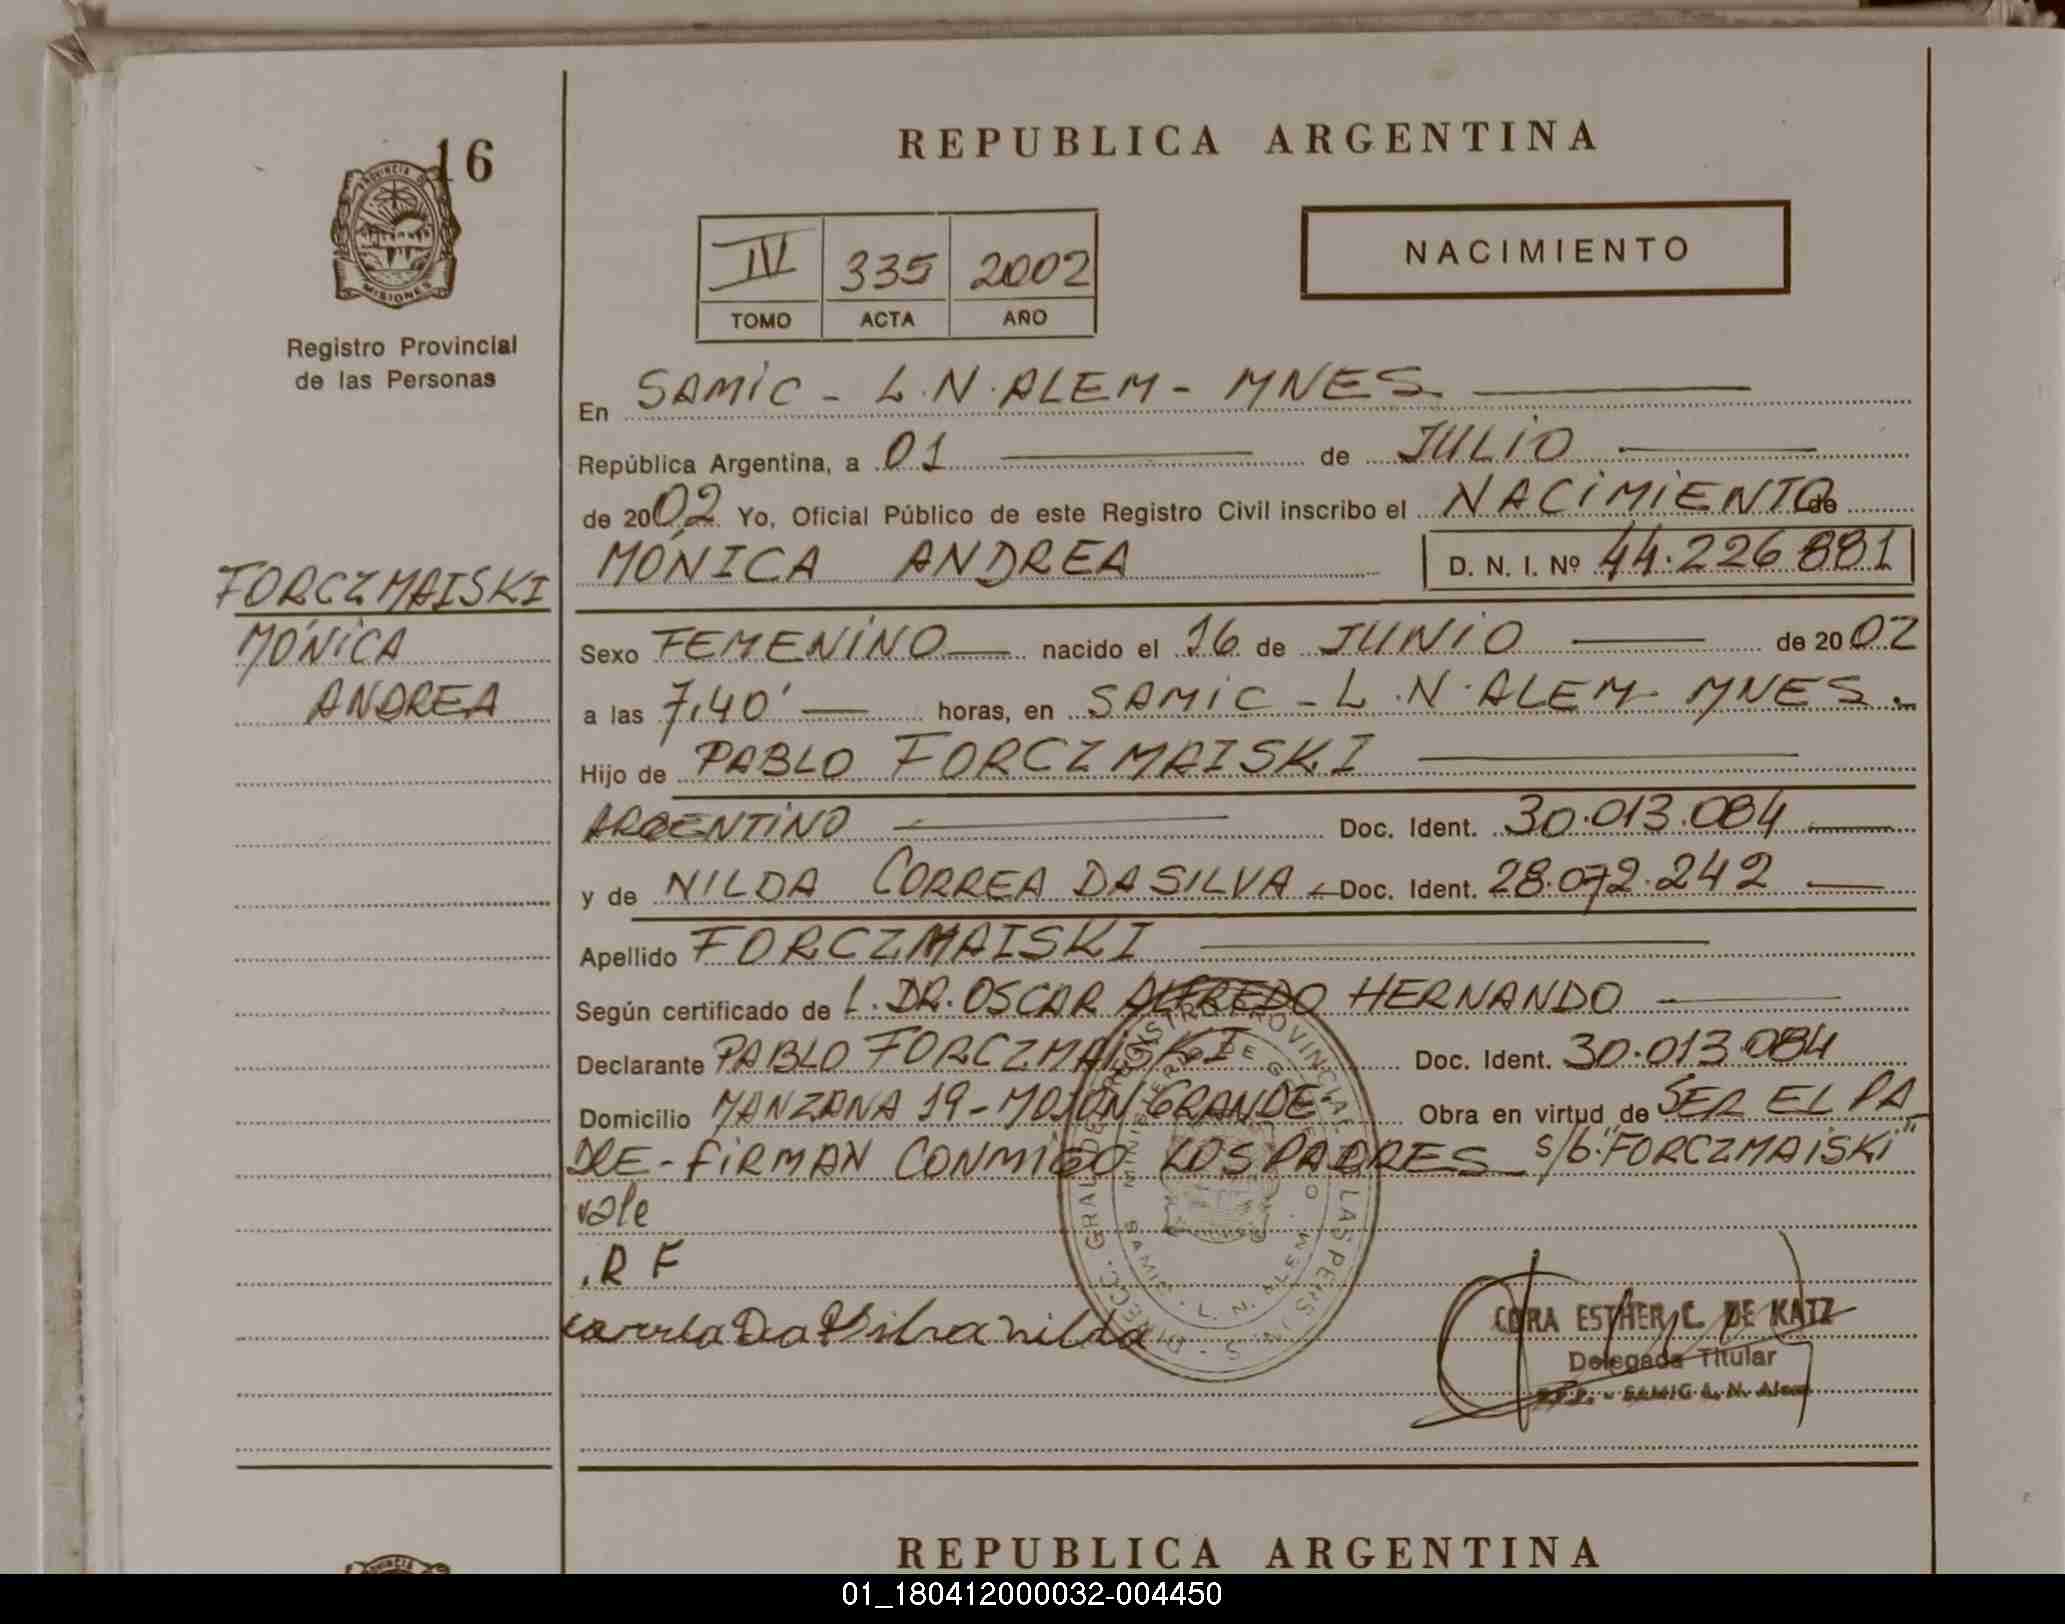 16
PROVINCIA DE
MISIONES
Registro Provincial
de las Personas
REPUBLICA ARGENTINA
NACIMIENTO
IV 335 2002
TOMO ACTA AÑO
En SAMIC - L.N. ALEM - MNES
República Argentina, a 01 de JULIO
de 2002 Yo, Oficial Público de este Registro Civil inscribo el NACIMIENTO de
MÓNICA ANDREA D. N. I. Nº 44.226.881
FORCZMAISKI
MÓNICA
ANDREA
Sexo FEMENINO nacido el 16 de JUNIO de 2002
a las 7,40' horas, en SAMIC - L.N. ALEM - MNES.
Hijo de PABLO FORCZMAISKI
ARGENTINO Doc. Ident. 30.013.084
y de NILDA CORREA DA SILVA - Doc. Ident. 28.072.242
Apellido FORCZMAISKI
Según certificado de L. DR. OSCAR ALFREDO HERNANDO
Declarante PABLO FORCZMAISKI Doc. Ident. 30.013.084
Domicilio MANZANA 19 - MOJON GRANDE Obra en virtud de SER EL PA
DRE - FIRMAN CONMIGO LOS PADRES s/b: "FORCZMAISKI"
vale
.R F
Da Silva nilda
CORA ESTHER C. DE KATZ
Delegada Titular
R.P.P. - SAMIC L. N. Alem
REPUBLICA ARGENTINA
01_180412000032-004450